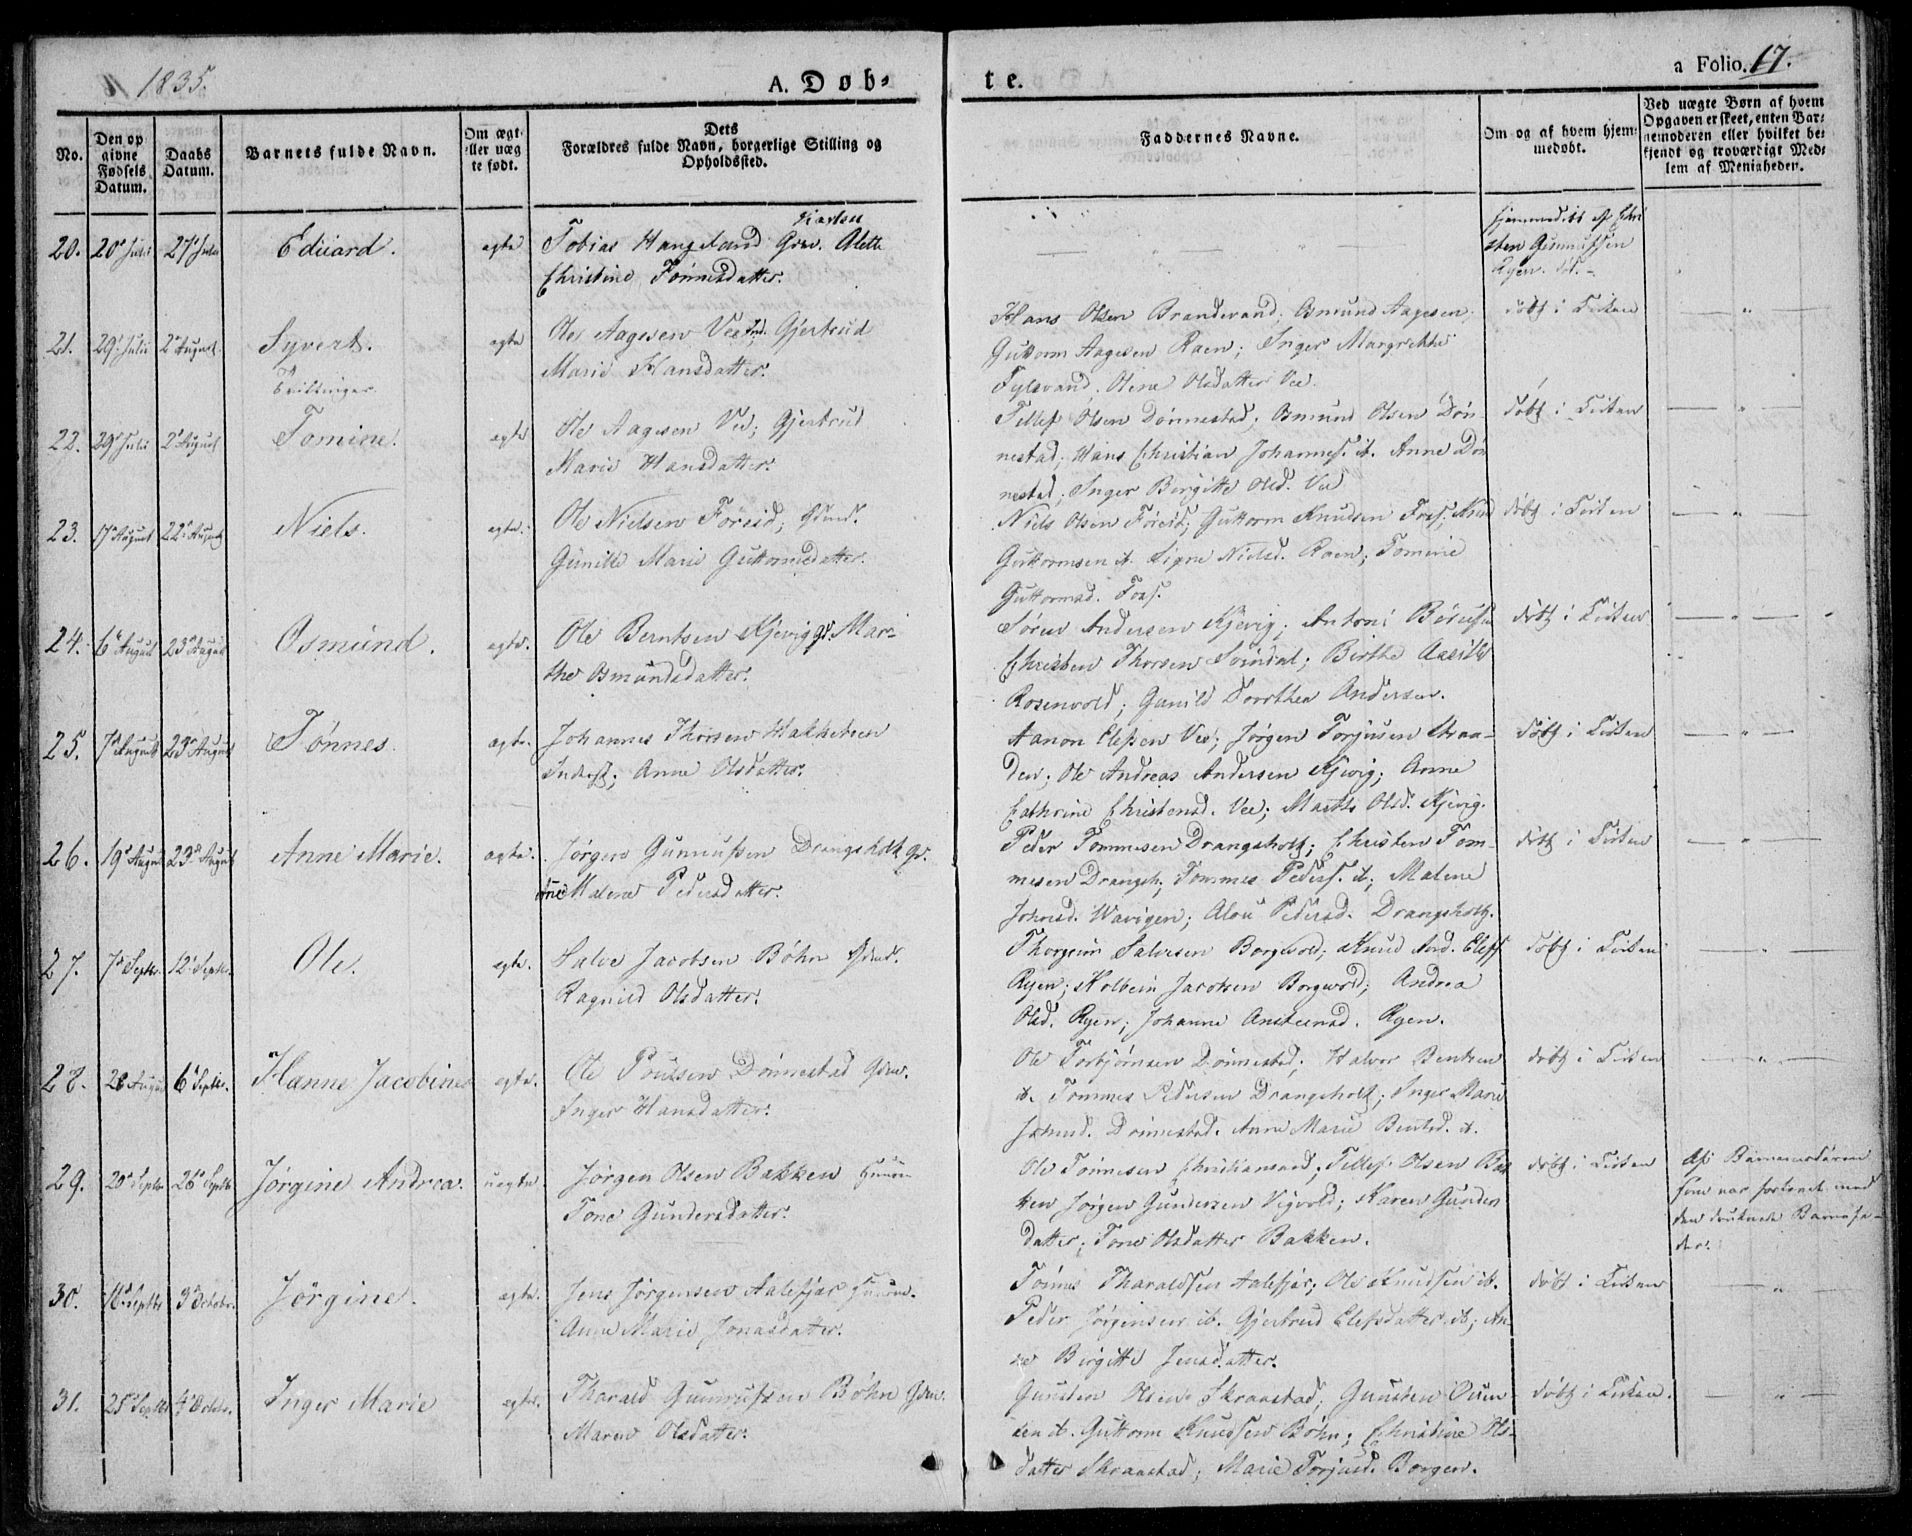 1835.
A. Døb-
te.
a Folio. 17.
No.
Den op
givne
Fødsels
Datum.
Daabs
Datum.
Barnets fulde Navn.
Om ægt-
eller uæg
te født.
Dets
Forældres fulde Navn, borgerlige Stilling og
Opholdssted.
Faddernes Navne.
Om og af hvem hjem-
medøbt.
Ved uægte Børn af hvem
Opgaven er skeet, enten Bar-
nemoderen eller hvilket be-
kjendt og troværdigt Med-
lem af Menigheden.
20. 20de Julii 27de Julii Eduard. ægte
Tobias Hangeland Alette
Christine Tønnesdatter.
hjemmedøbt af Chri
sten Gunnufsen
Ryen. død. -
21. 29de Julii 2de August Syvert. ægte
Tvillinger.
Ole Aagesen Vee Ind. Gjertrud
Marie Hansdatter.
Hans Olsen Brandevand; Osmund Aagesen
Guttorm Aagesen Raen; Inger Margrethe
Fylsvand. Olene Olsdatter Vee.
døbt i Kirken
22. 29de Julii 2de August Tomine. ægte
Ole Aagesen Vee; Gjertrud
Marie Hansdatter.
Tellef Olsen Dønnestad; Osmund Olsen Døn-
nestad; Hans Christian Johannes. it. Anne Døn
nestad; Inger Birgitte Olsd. Vee
døbt i Kirken
23. 17de August 22de August Niels. ægte.
Ole Nielsen Foreid;
Gunille Marie Guttormsdatter.
Niels Olsen Foreid; Guttorm Knudsen Fos. Knud
Guttormsen it. Signe Nielsd. Raen; Tomine
Guttormsd. Fos.
døbt i Kirken
24. 6te August 23de August Osmund. ægte.
Ole Berntsen Kjevig Gr. Mar-
the Osmundsdatter.
Søren Andersen Kjevig; Antoni
Christen Thorsen Birthe
Rosenvold; Gunild Dorthea Andersen.
døbt i Kirken
25. 7de August 23de August Tønnes. ægte.
Johannes Thorsen
Inderst; Anne Olsdatter.
Aanon Elefsen Vee; Jørgen Torjusen Straa-
den; Ole Andreas Andersen Kjevig; Anne
Cathrine Christensd. Vee; Marthe Olsd. Kjevig.
døbt i Kirken
26. 19de August 23de August Anne Marie. ægte.
Jørgen Gunnufsen Drangsholt Gr.
Anne Malene Pedersdatter.
Peder Tommesen Drangsholt; Christen Tom-
mesen Drangsh; Tommes Peders. it; Malene
Johnsd. Wavigen; Alou Pedersd. Drangsholt.
døbt i Kirken
27. 7de Septbr. 12te Septbr. Ole. ægte.
Salve Jacobsen Bøhn
Ragnild Olsdatter.
Thorgrim Salvesen Borgvold; Knud And. Elefs
Ryen; Kolbein Jacobsen Borgvold; Andrea
Olsd. Ryen; Johanne Ansteensd. Ryen.
døbt i Kirken
28. 28 August 6te Septbr. Hanne Jacobine ægte.
Ole Poulsen Dønnestad Gdm.
Inger Hansdatter.
Ole Torbjørnsen Dønnestad; Halvor Bentsen
it. Tommes Pedersen Drangsholt; Inger Marie
Johnsd. Dønnestad. Anne Marie Bentsd. it.
døbt i Kirken
29. 20de Septbr 26de Septbr Jørgine Andrea. uægte.
Jørgen Olsen Bakken
Tone Gundersdatter.
Ole Tønnesen Christiansand; Tellef Olsen Bak
ken Jørgen Gundersen Vigvold; Karen Gunders
datter; Tone Olsdatter Bakken.
døbt i Kirken
Af Barnemoderen
som var forlovet med
den druknede Barnefa-
der.
30. 16de Septbr 3de Octobr. Jørgine. ægte.
Jens Jørgensen Aalefjær
Anne Marie Jonasdatter.
Tønnes Tharaldsen Aalefjær; Ole Knudsen it.
Peder Jørgensen it. Gjertrud Elefsdatter it; An-
ne Birgitte Jensdatter.
døbt i Kirken
31. 25de Septbr 4de Octobr. Inger Marie ægte.
Tharald Gunnufsen Bøhn Gdm.
Maren Olsdatter.
Gunsten Olsen Skraastad; Gunsten
it. Guttorm Knudsen Bøhn; Christine Ols-
datter Skraastad; Marie Torjusd. Borgen.
døbt i Kirken.